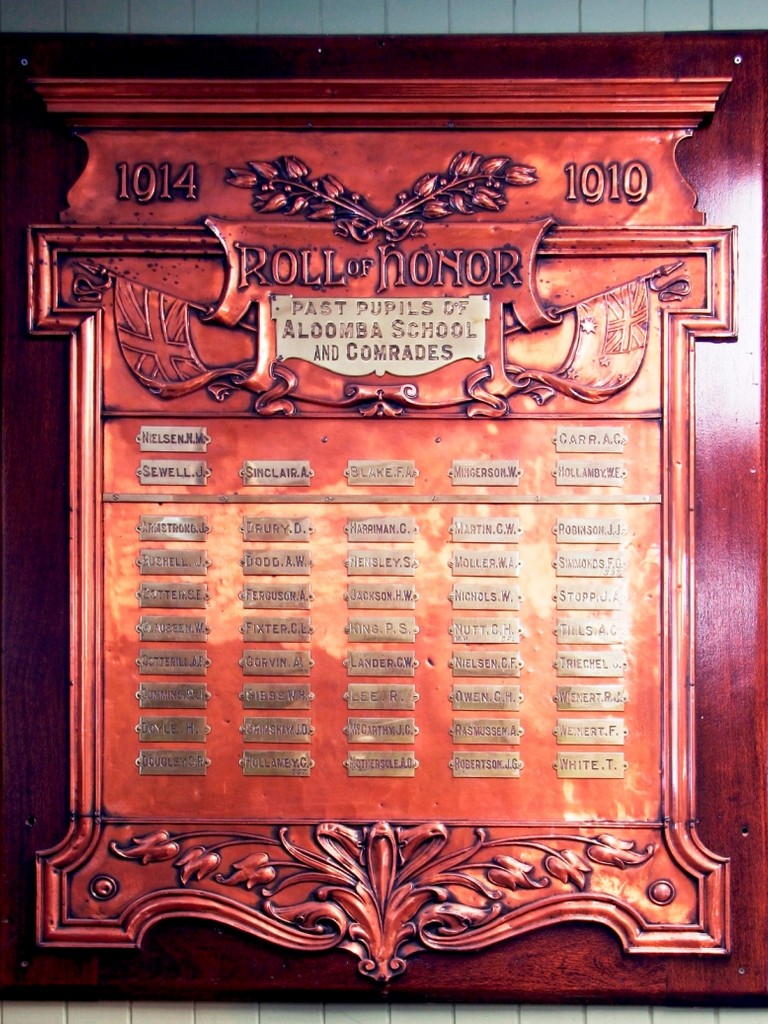 1914 1919
ROLL OF HONOR
PAST PUPILS OF
ALOOMBA SCHOOL
AND COMRADES
NIELSEN.N.M. CARR.A.C.
SEWELL.J. SINCLAIR.A. BLAKE.F.A. MINGERSON.W. HOLLAMBY.W.E.
ARMSTRONG.J. DRURY.D. HARRIMAN.C. MARTIN.C.W. ROBINSON.J.J.
BUSHELL.J. DODD.A.W. HENSLEY.S. MOLLER.W.A. SIMMONDS.F.G.
FERGUSON.A. JACKSON.H.W. NICHOLS.W. STOPP.J.A.
CLAUSEN.W. FIXTER.C.L. KING.P.S. NUTT.C.H. TILLS.A.C.
COTTERILL.A.F. GORVIN.A. LANDER.C.W. NIELSEN.C.F. TRIECHEL.J.
CUMMING.R.J. GIBBS.W.H. LEE.R. OWEN.C.H. WIENERT.R.J.
DOYLE.H. GRIMSHAW.J.D. McCARTHY.J.C. RASMUSSEN.A. WEINERT.F.
HOLLAMBY.C. MOTHERSOLE.A.O. ROBERTSON.J.G. WHITE.T.